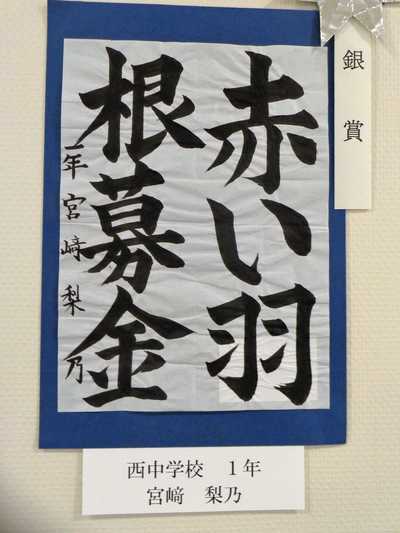 銀賞
赤い羽
根募金
一年 宮﨑梨乃
西中学校 1年
宮﨑 梨乃